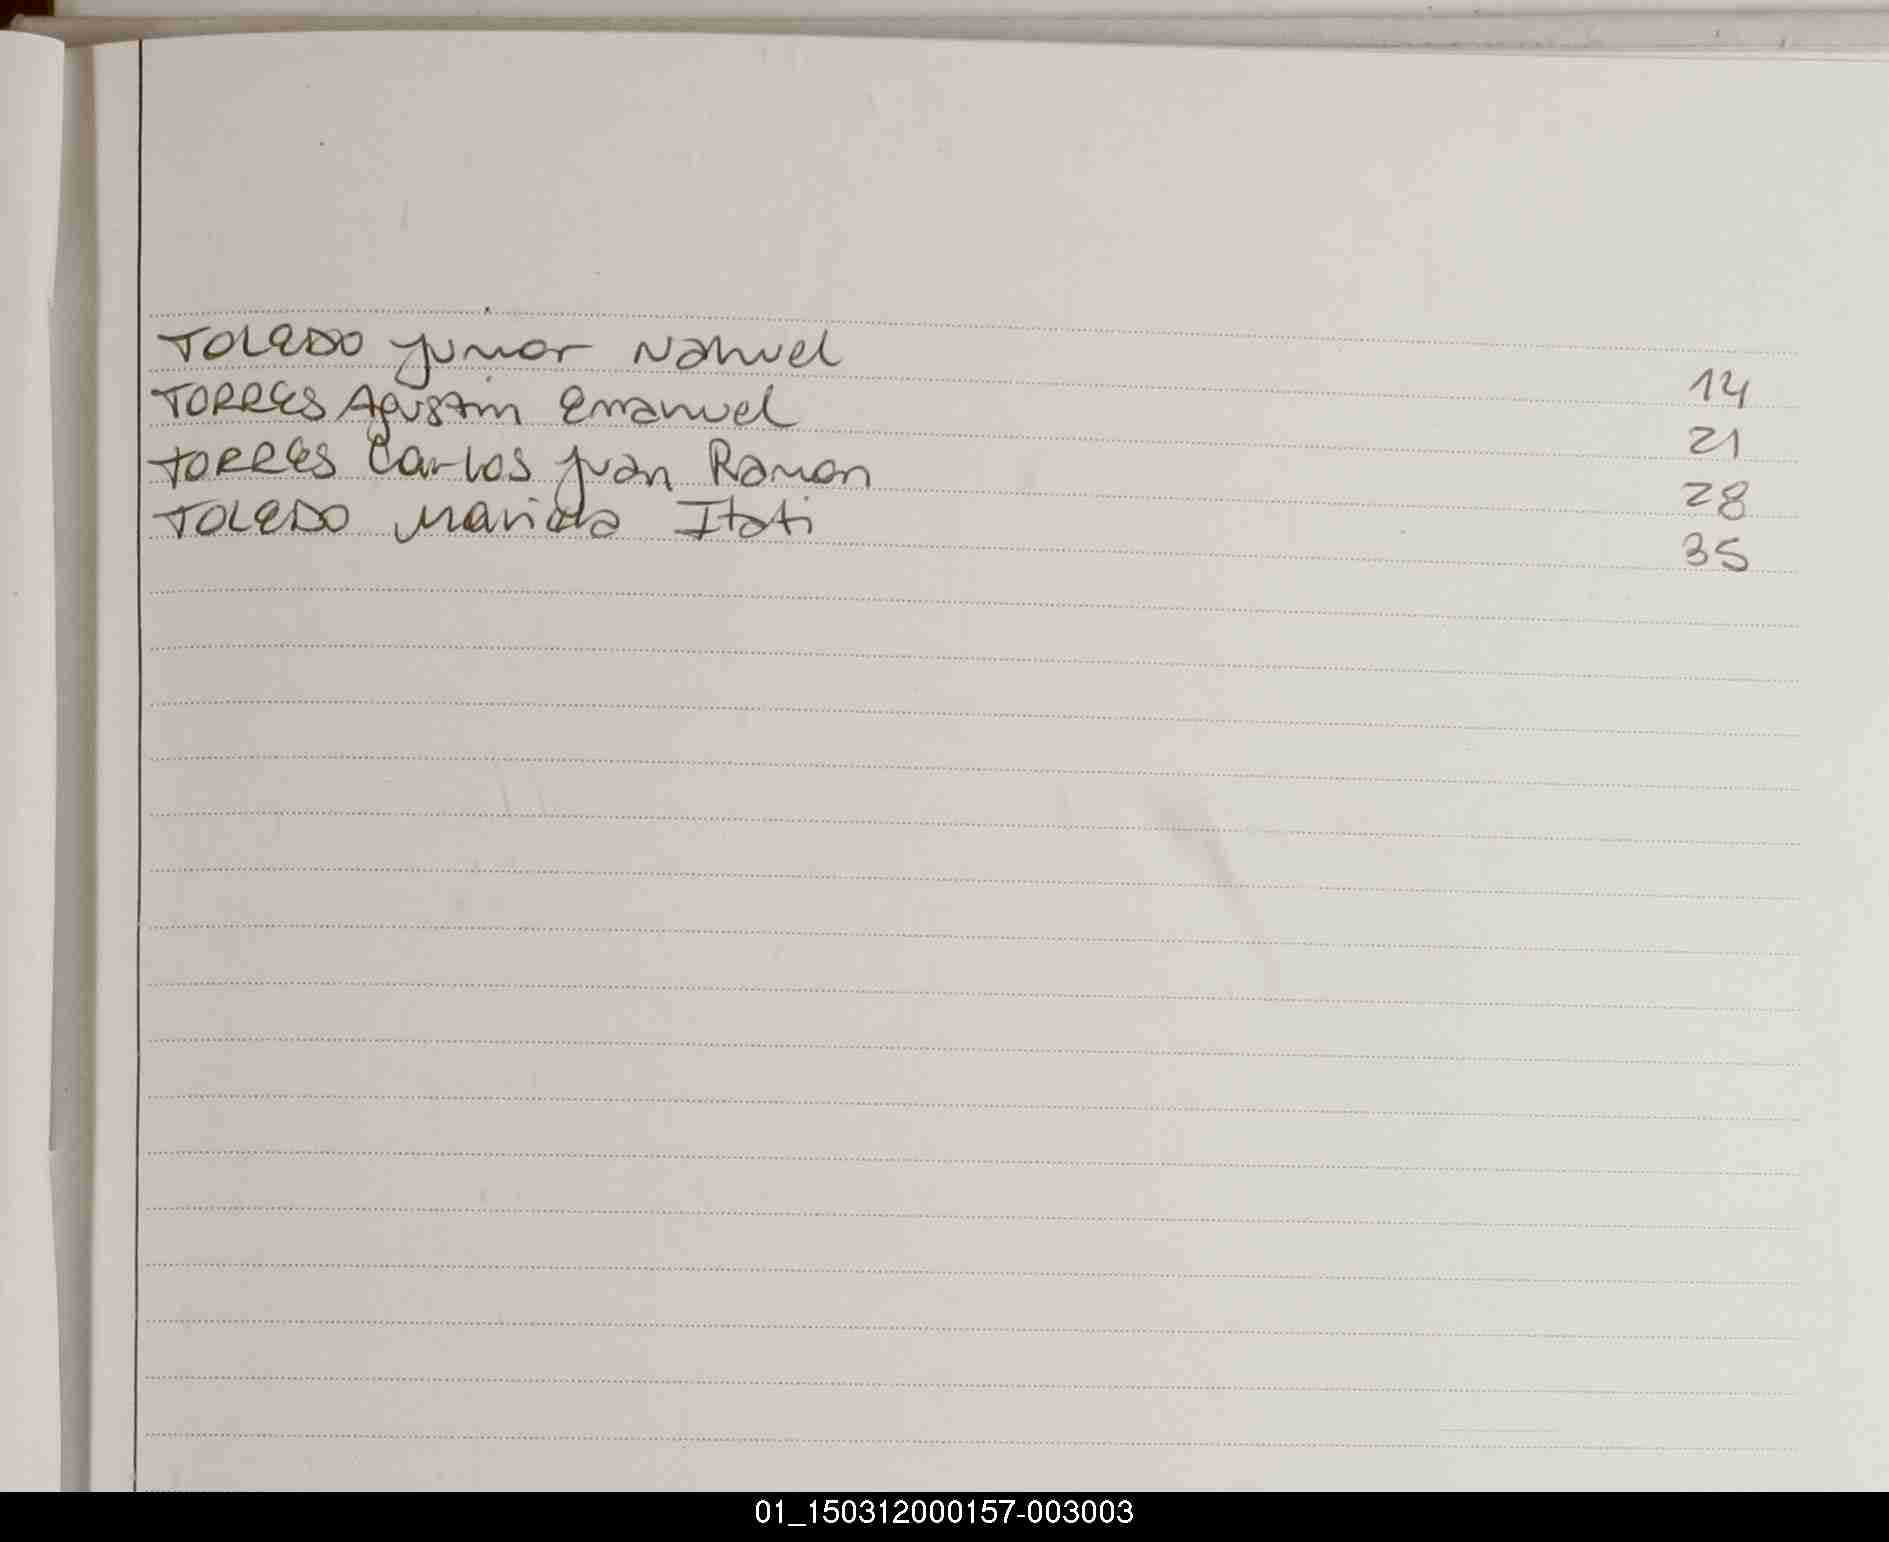 TOLEDO Junior Nahuel 14
TORRES Agustin Emanuel 21
TORRES Carlos Juan Ramon 28
TOLEDO Mariela Itati 35
01_150312000157-003003